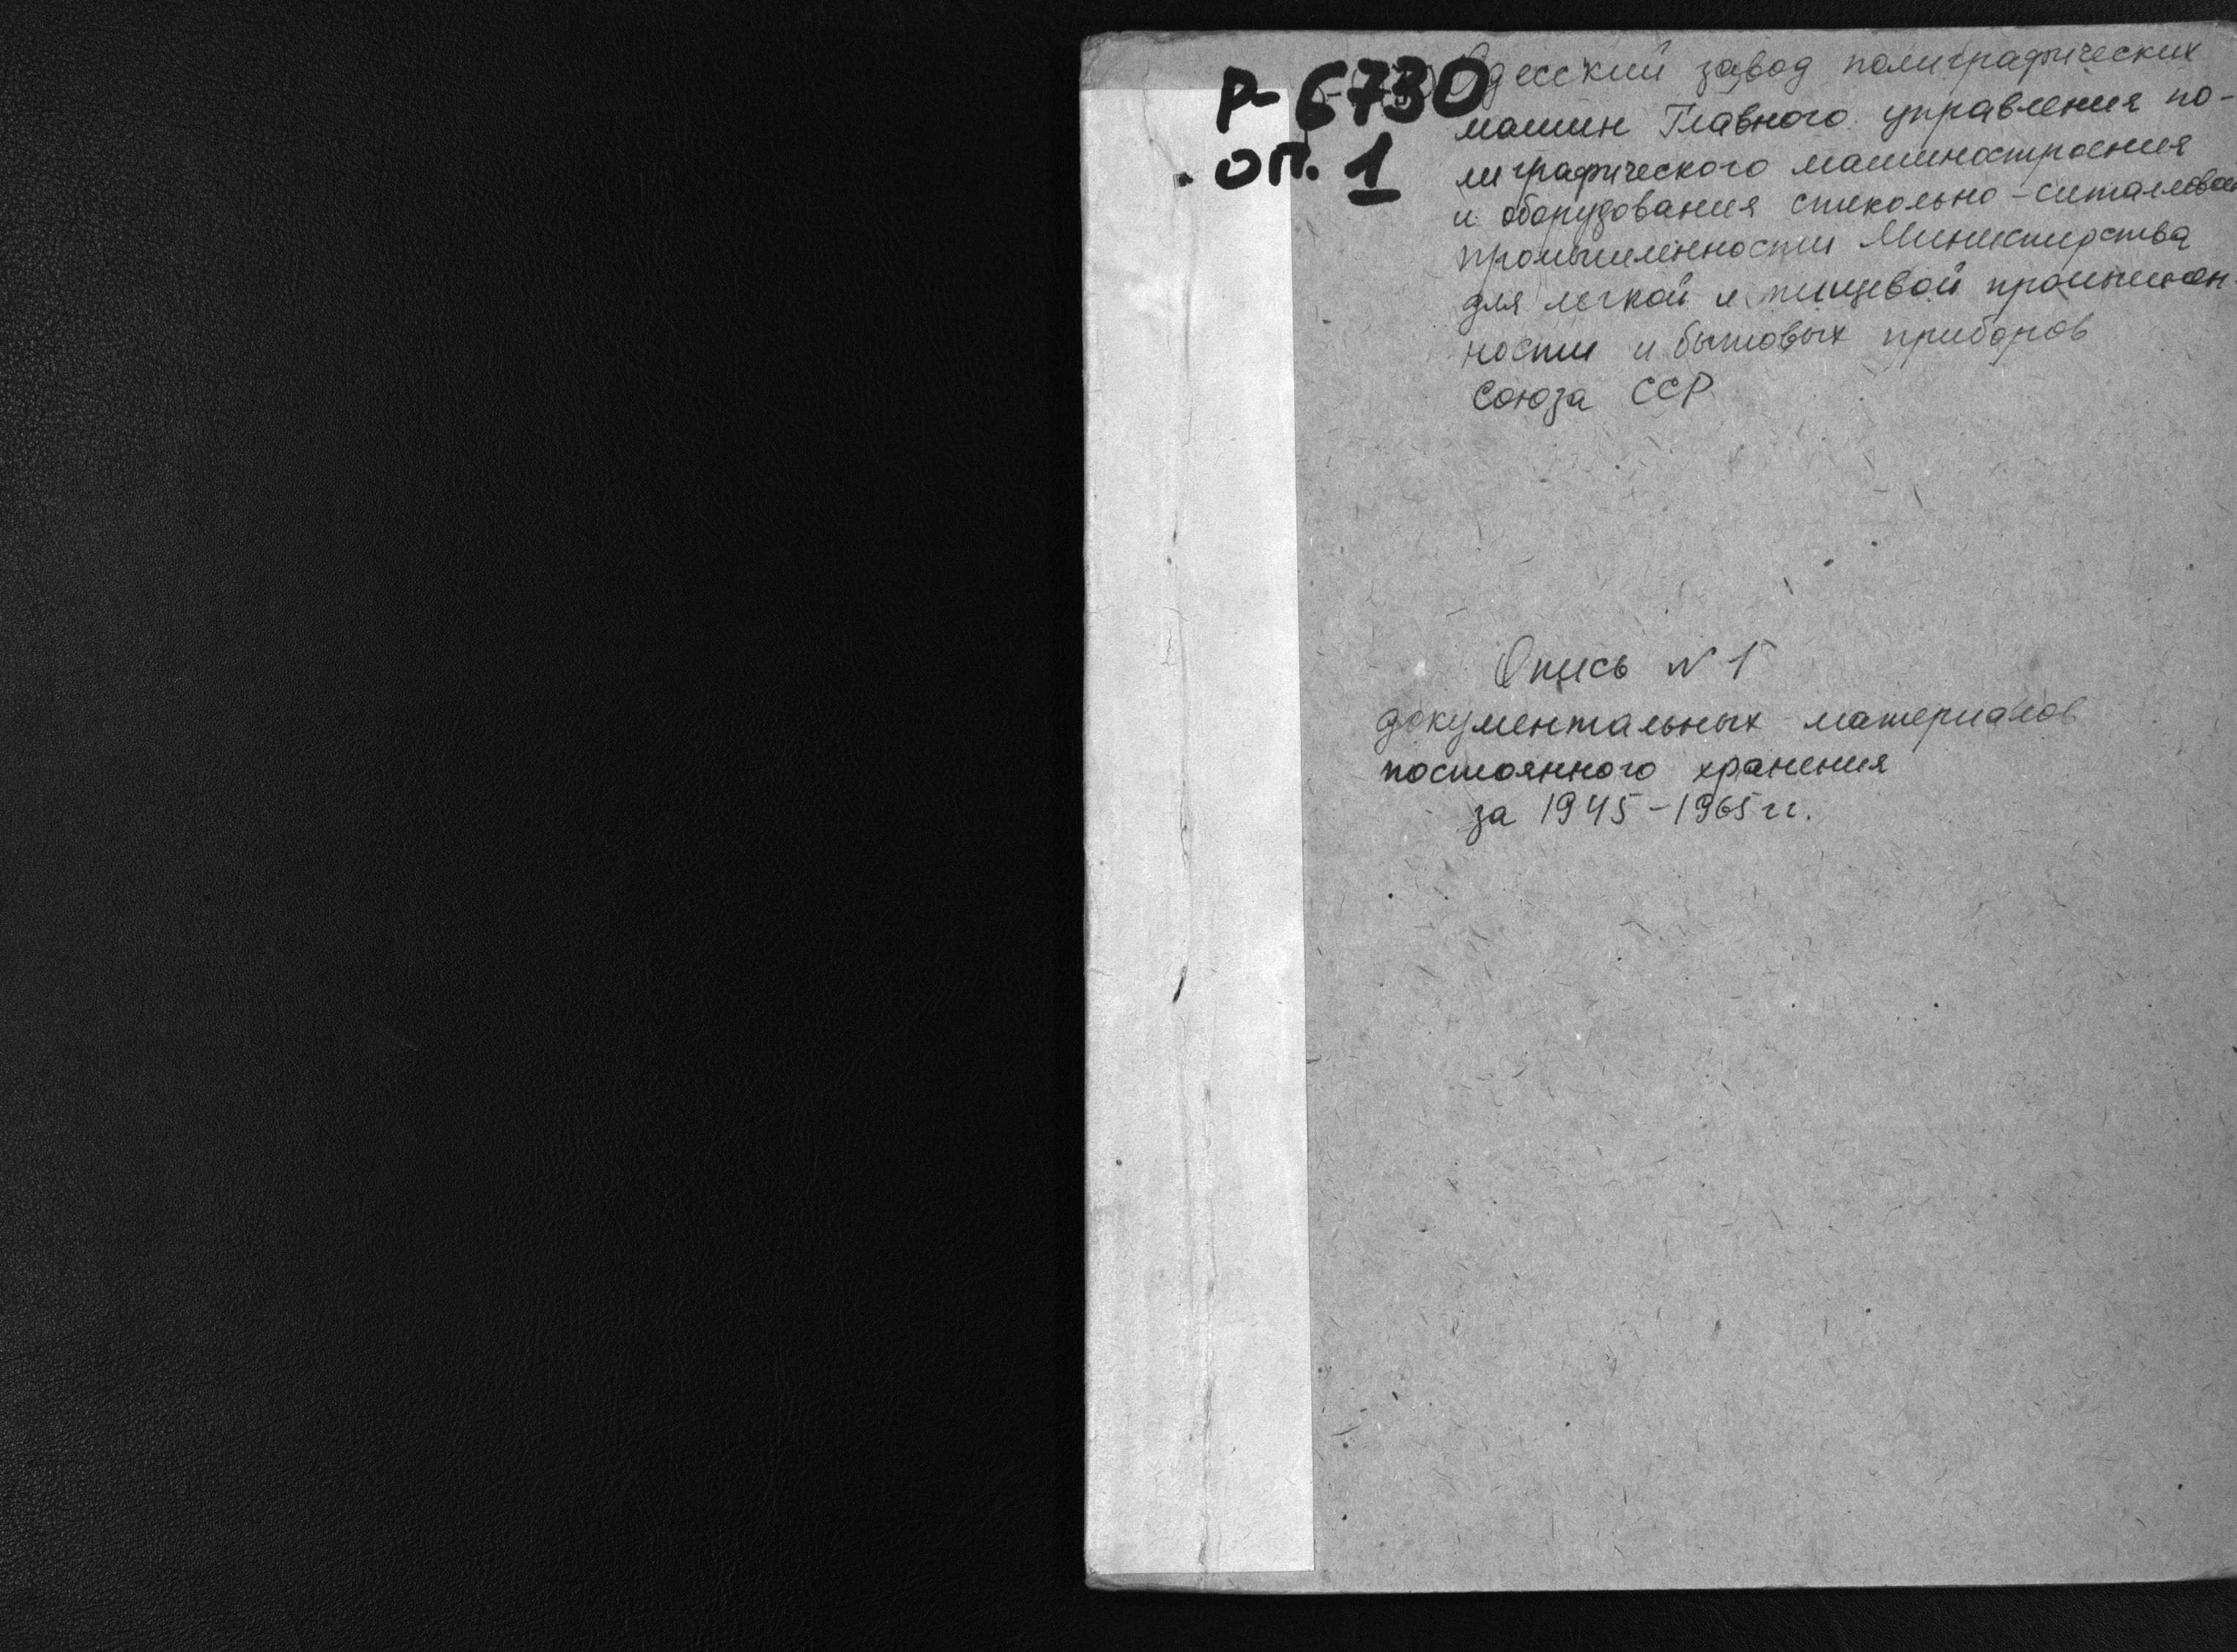 Р-6730
оп. 1
Одесский завод полиграфических
машин Главного управления по-
лиграфического машиностроения
и оборудования стекольно-ситалловой
промышленности Министерства
для легкой и пищевой промышлен-
ности и бытовых приборов
Союза ССР
Опись N 1
документальных материалов
постоянного хранения
за 1945-1965 гг.